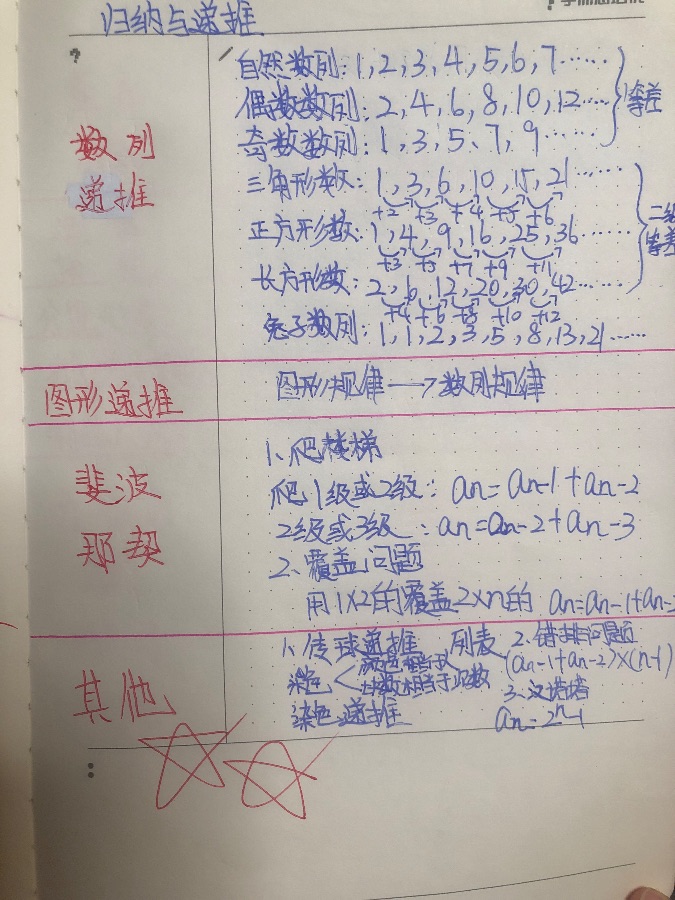 归纳与递推
数列
递推
自然数列:1,2,3,4,5,6,7……
偶数数列:2,4,6,8,10,12……
奇数数列:1,3,5、7,9……
等差
三角形数:1,3,6,10,15,21……
+2 +3 +4 +5 +6
正方形数:1,4,9,16,25,36……
+3 +5 +7 +9 +11
长方形数:2,6,12,20,30,42……
+4 +6 +8 +10 +12
二级
等差
兔子数列:1,1,2,3,5,8,13,21……
图形递推
图形规律→数列规律
斐波
那契
1、爬楼梯
爬1级或2级:an=an-1+an-2
2级或3级:an=an-2+an-3
2、覆盖问题
用1×2的覆盖2×n的 an=an-1+an-2
其他
1、传球递推 列表
染色
颜色相当于人
块数相当于次数
染色递推
2、错排问题
(an-1+an-2)×(n-1)
3、汉诺塔
an=2^n-1